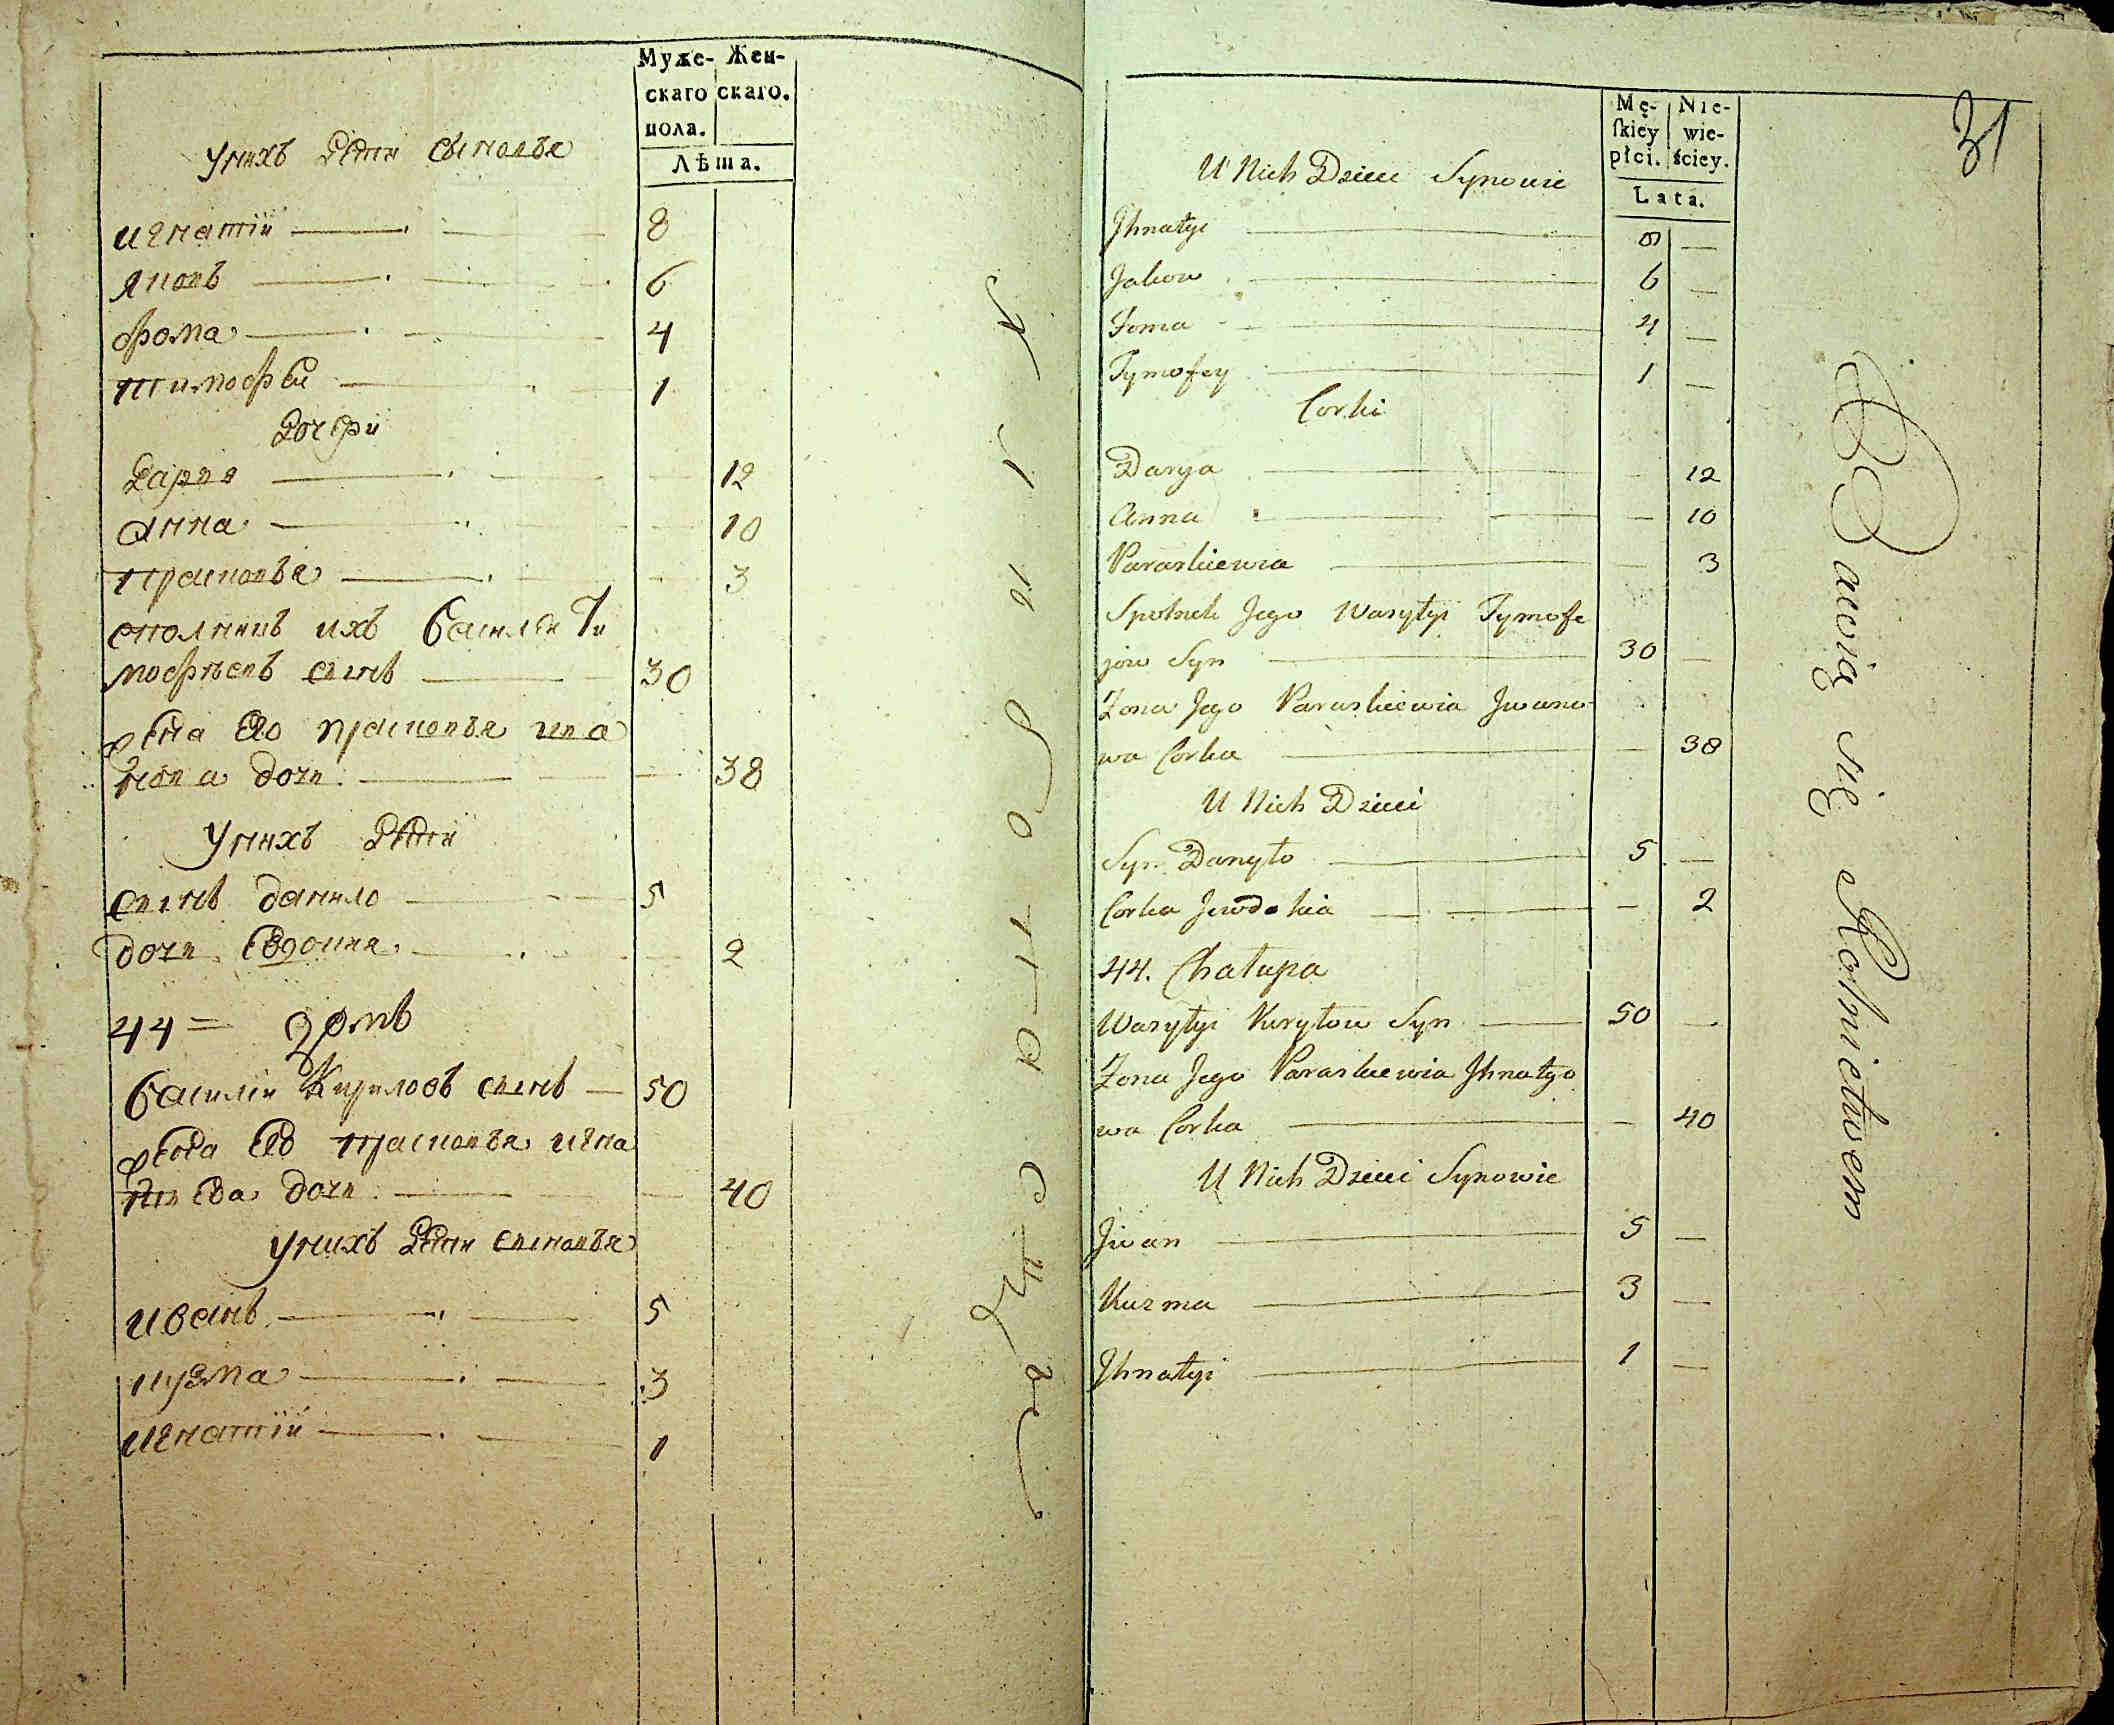 Муже- Жен-
скаго скаго.
пола.
Лѣта.
у нихъ дѣти сыновья
игнатїи 8
яковъ 6
фома 4
тимофѣи 1
дочери
дарья 12
анна 10
прасковья 3
сполникъ ихъ василеи Ти
мофѣевъ сынъ 30
жена его прасковья ива
нова дочь 38
у нихъ дѣти
сынъ данило 5
дочь евдокия 2
44 = домъ
василїи кириловъ сынъ 50
жена его прасковья игна
тьева дочь 40
у нихъ дѣти сыновья
иванъ 5
кузма 3
игнатїй 1
31
Mę- Nie-
skiey wie-
płci. ściey.
Lata.
U Nich Dzieci Synowie
Jhnatyi 8 —
Jakow 6 —
Foma 4 —
Tymofey 1 —
Corki
Darya — 12
Anna — 10
Paraskiewia — 3
Spolnik Jego Wasylyi Tymofe
jow Syn 30 —
Zona Jego Paraskiewia Jwano
wa Corka — 38
U Nich Dzieci
Syn Danyło 5 —
Corka Jewdokia — 2
44. Chałupa
Wasylyi Kiryłow Syn 50 —
Zona Jego Paraskiewia Jhnatyo
wa Corka — 40
U Nich Dzieci Synowie
Jwan 5 —
Kuzma 3 —
Jhnatyi 1 —
Bawią się Rolnictwem